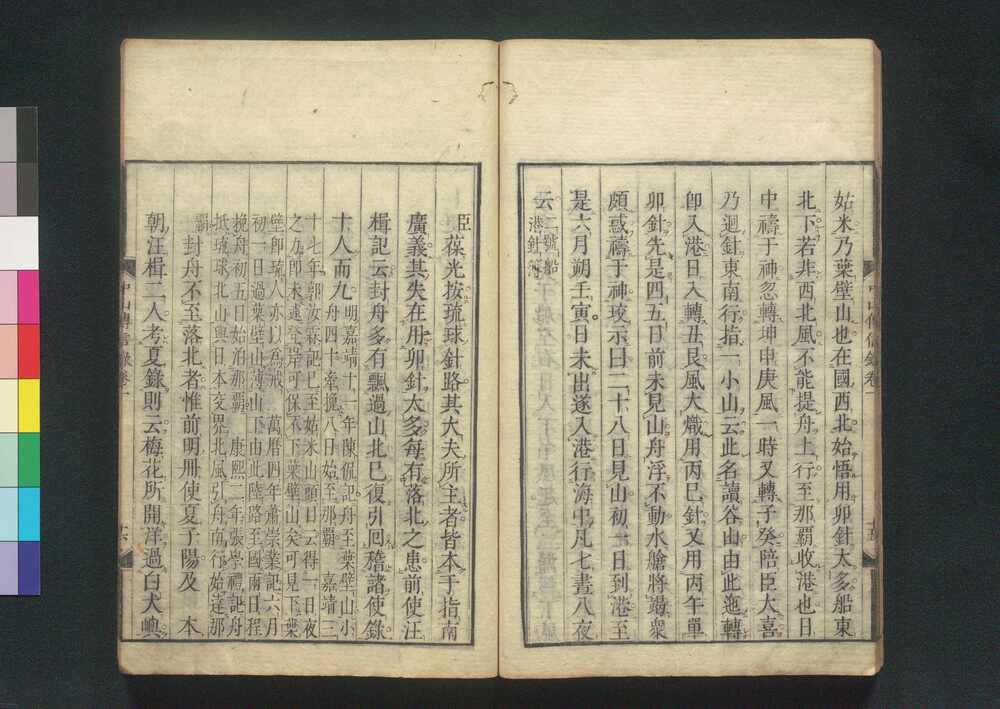 姑米乃葉壁山也在國西北始悟用卯針太多船東
北下若非西北風不能提舟上行至那霸收港也日
申禱于神忽轉坤申庚風一時又轉子癸陪臣大喜
乃迴針東南行指一小山云此名讀谷山由此迤轉
卽入港日入轉丑艮風大熾用丙巳針又用丙午單
卯針先是四五日前未見山舟浮不動水艙將竭衆
頗惑禱于神珓示曰二十八日見山初一日到港至
是六月朔壬寅日未出遂入港行海中凡七晝八夜
云二號船
港針簿
中山傳信錄卷一
臣葆光按琉球針路其大夫所主者皆本于指南
廣義其失在用卯針太多每有落北之患前使汪
楫記云封舟多有飄過山北巳復引囘稽諸使錄
十人而九明嘉靖十一年陳侃記舟至葉壁山小
舟四十牽挽八日始至那霸 嘉靖三
十七年郭汝霖記巳至姑米山頭目云得一日夜
之力卽未遽登岸可保不下葉壁山矣可見下葉
壁卽琉人亦以爲戒 萬曆四年蕭崇業記六月
初一日過葉壁山薄山下由此陸路至國兩日程
挽舟初五日始泊那霸 康熙二年張學禮記舟
抵琉球北山與日本交界北風引舟南行始逹那
霸封舟不至落北者惟前明冊使夏子陽及 本
朝汪楫二人考夏錄則云梅花所開洋過白犬嶼
中山傳信錄卷一
十六